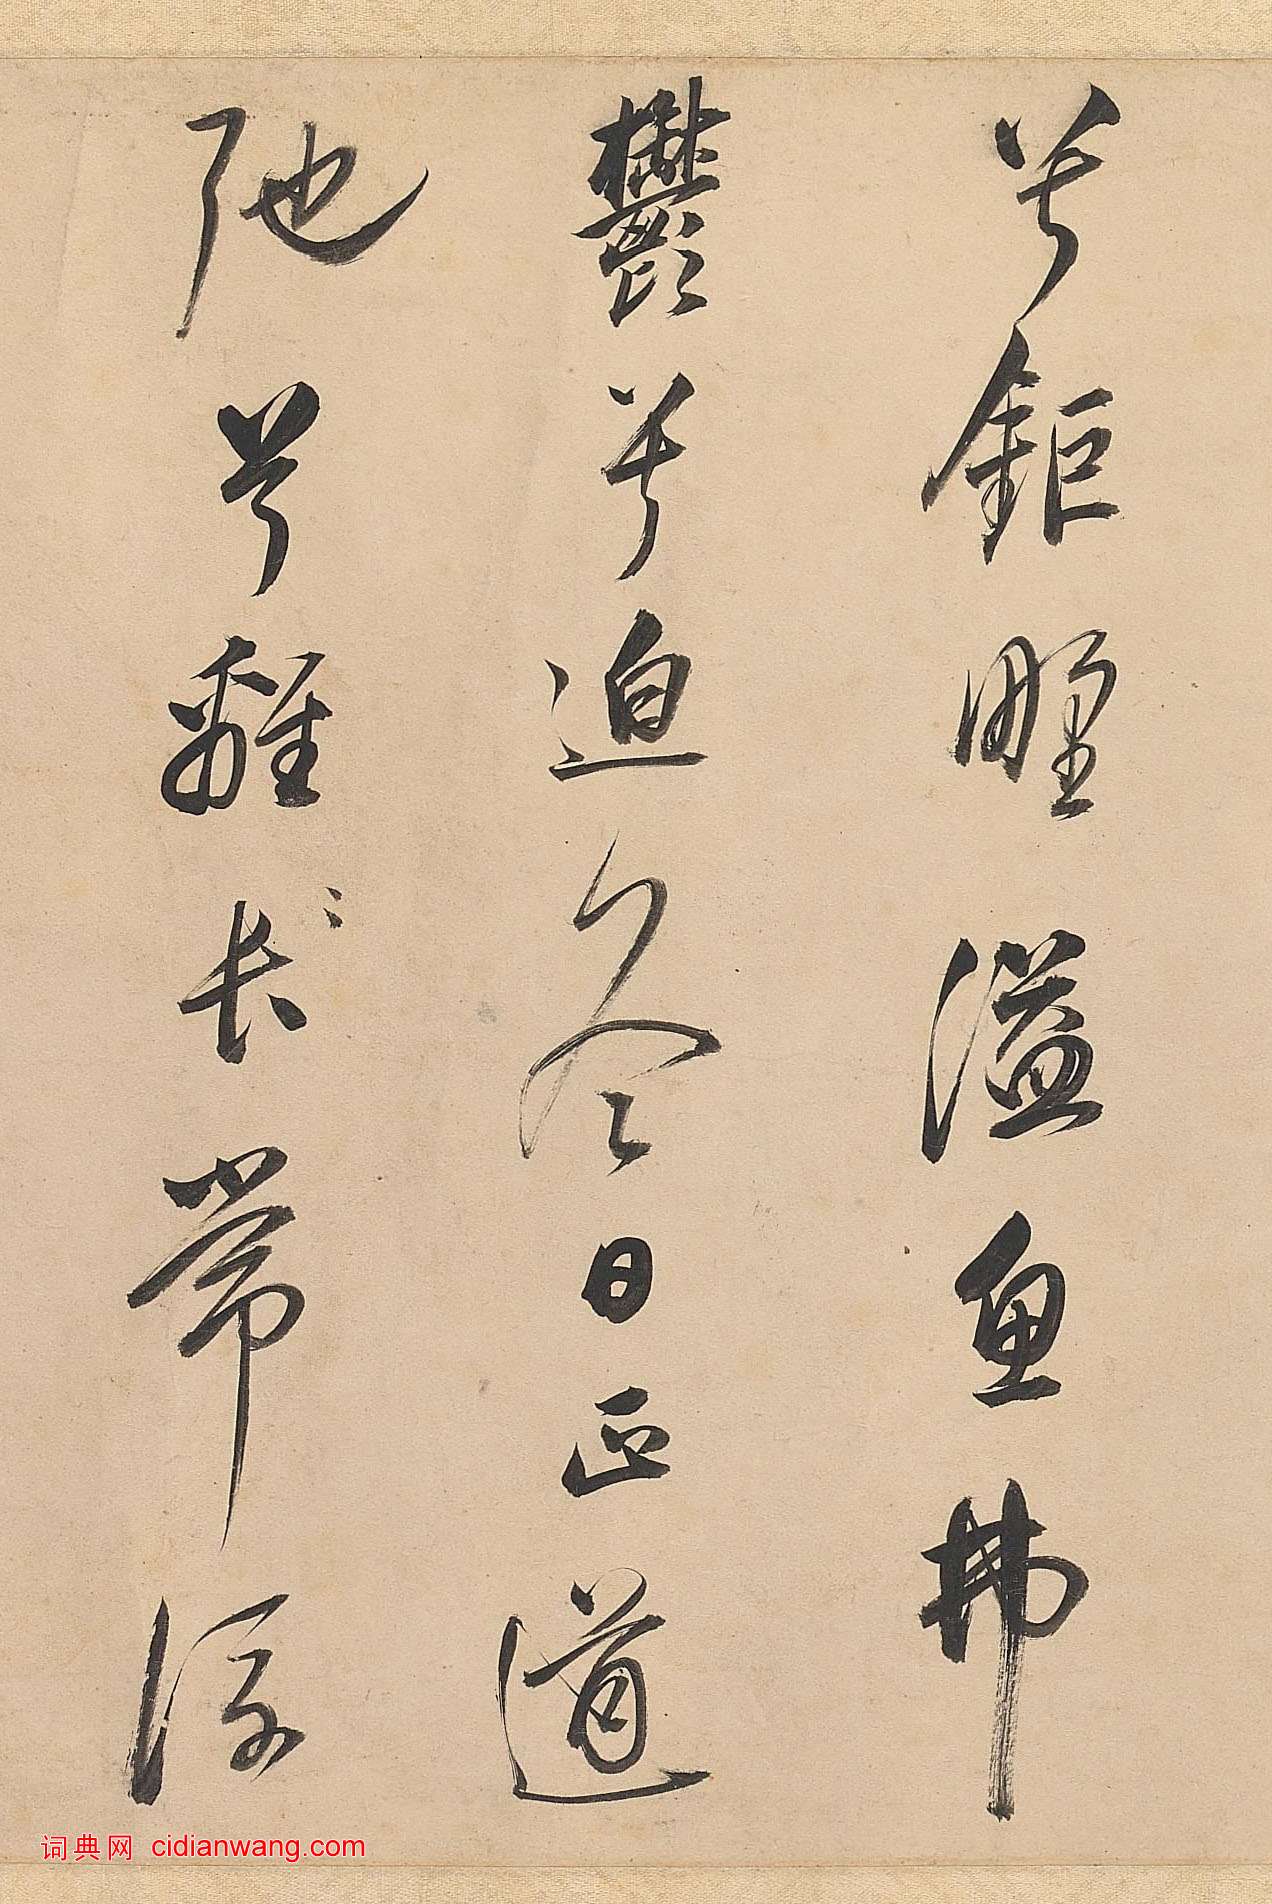 兮鉅野溢魚拂
鬱兮迫冬日正道
弛兮離長常流
词典网 cidianwang.com